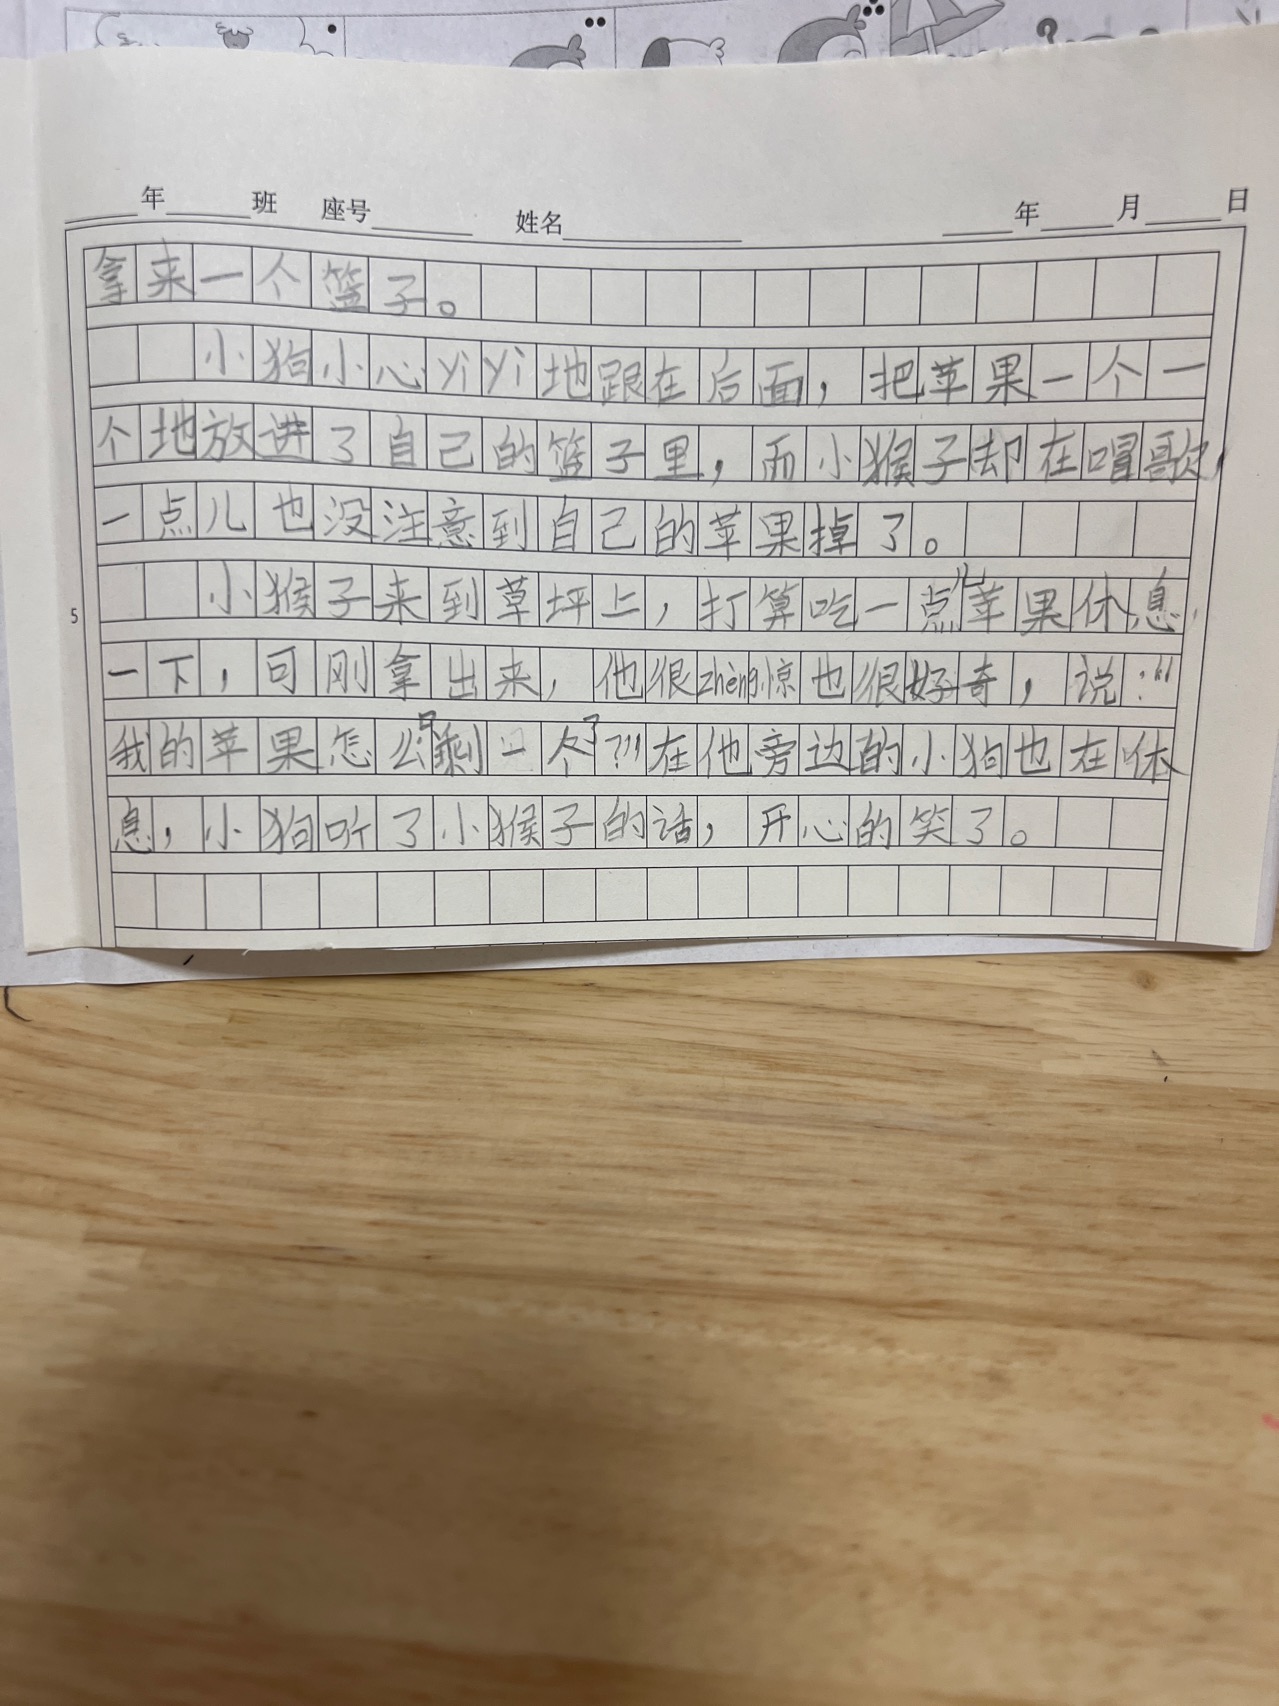 年 班 座号 姓名 年 月 日
拿来一个篮子。
小狗小心yìyì地跟在后面，把苹果一个一
个地放进了自己的篮子里，而小猴子却在唱歌，
一点儿也没注意到自己的苹果掉了。
5 小猴子来到草坪上，打算吃一点儿苹果休息
一下，可刚拿出来，他很zhèng惊也很好奇，说：“
我的苹果怎么只剩一个了？！”在他旁边的小狗也在休
息，小狗听了小猴子的话，开心的笑了。